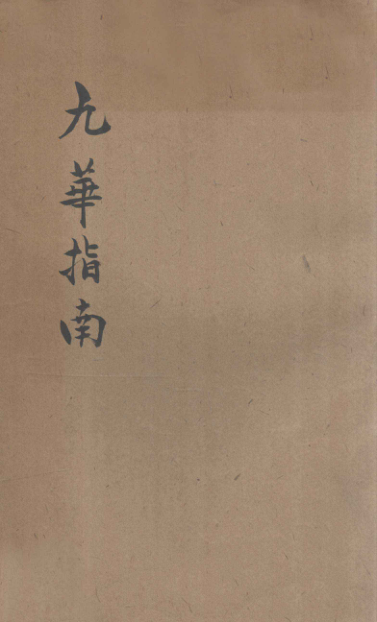 九華指南